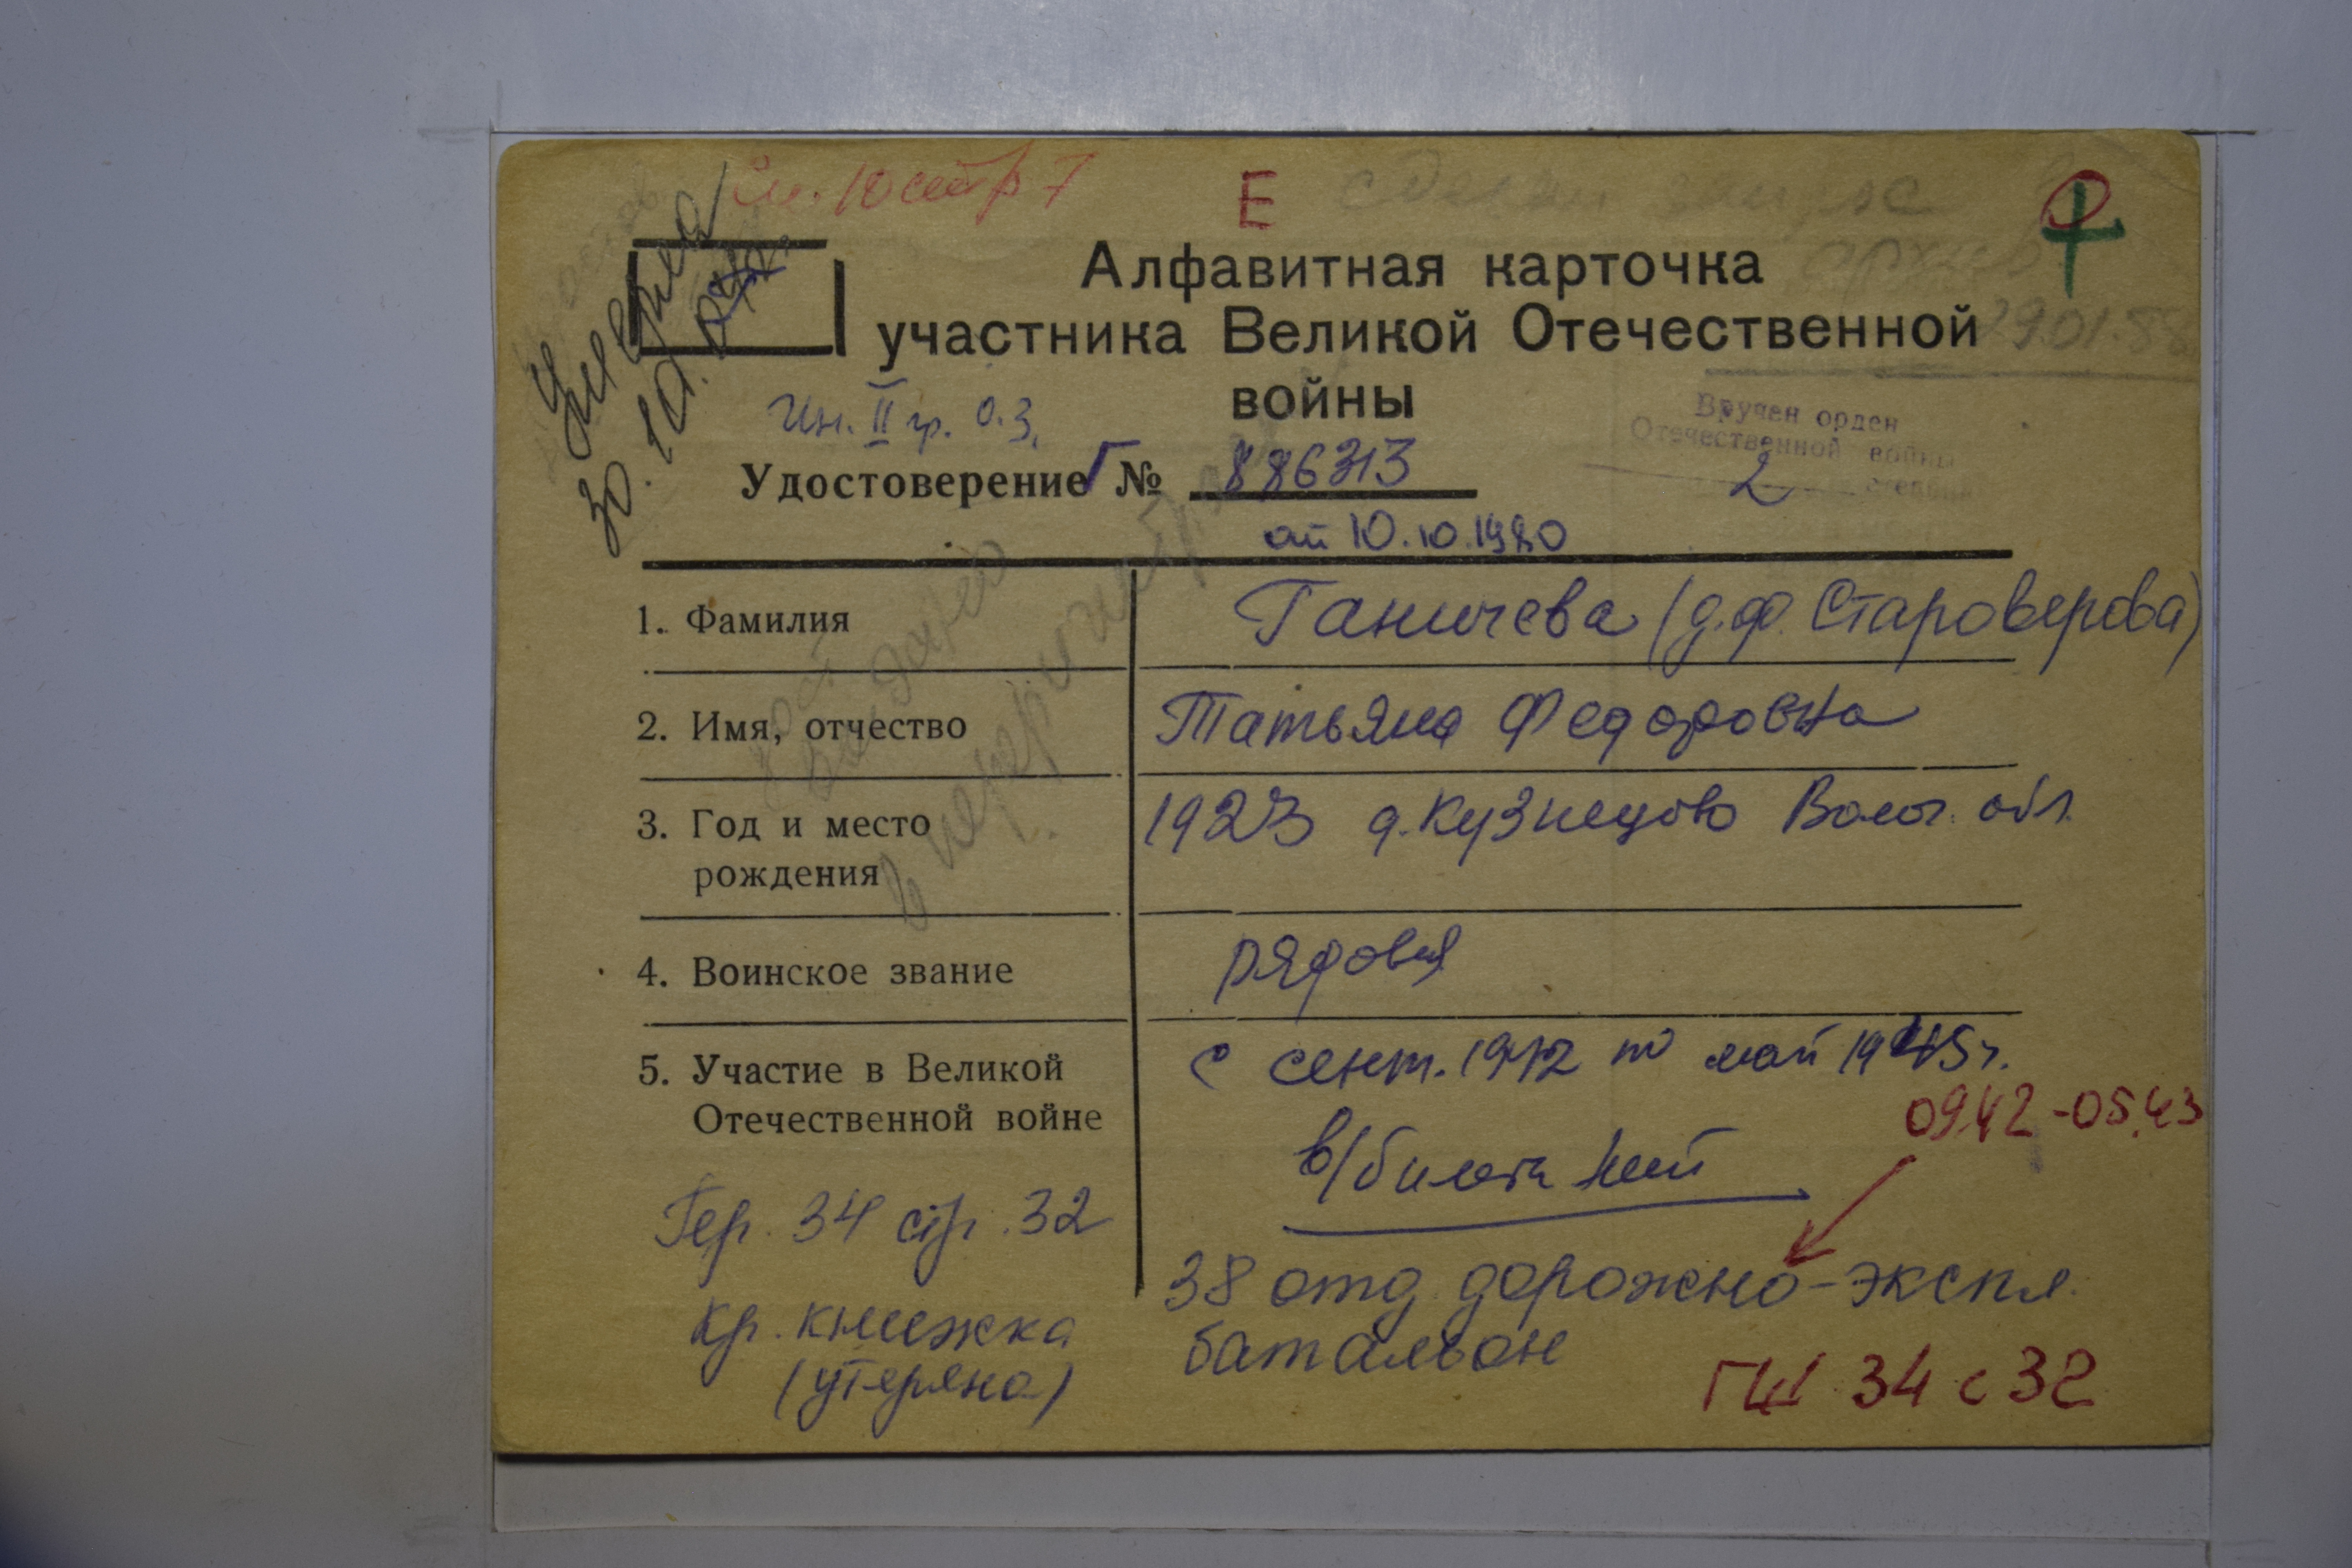 см. 10 стр 7
Е
сделан запрос
архив
29.01.88
Умерла
30.10.
Алфавитная карточка
участника Великой Отечественной
войны
Ин. II гр. О.З.
Вручен орден
Отечественной войны
2 степени
Удостоверение Г № 886313
от 10.10.1980
1. Фамилия Ганичева (д.ф. Староверова)
2. Имя, отчество Татьяна Федоровна
3. Год и место 1923 д. Кузнецово Волог. обл.
рождения
4. Воинское звание рядовая
5. Участие в Великой с сент. 1942 по май 1945 г.
Отечественной войне
09.42-05.43
в/билета нет
Гер. 34 стр. 32
38 отд. дорожно-экспл.
батальон
Кр. книжка
(утеряна)
ГШ 34 с 32